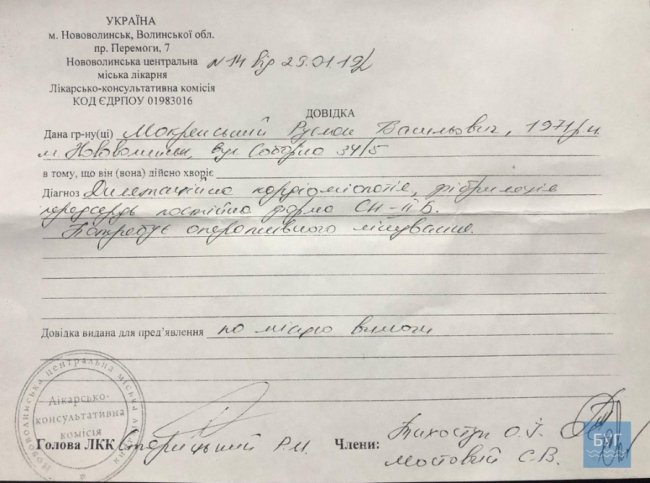 УКРАЇНА
м. Нововолинськ, Волинської обл.
пр. Перемоги, 7
Нововолинська центральна
міська лікарня
Лікарсько-консультативна комісія
КОД ЄДРПОУ 01983016
N 14 від 29.01.19р
ДОВІДКА
Дана гр-ну(ці) Мокренський Руслан Васильович, 1971р.н
м Нововолинськ, вул Соборна 34/5
в тому, що він (вона) дійсно хворіє
Діагноз Дилятаційна кардіоміопатія, фібриляція
передсердь постійна форма СН-ІІБ.
Потребує оперативного лікування.
Довідка видана для пред'явлення по місцю вимоги
Нововолинська центральна міська лікарня
Лікарсько-
консультативна
комісія
Голова ЛКК Р.И.
Члени: О.Г.
Мостовий С.В.
БУГ